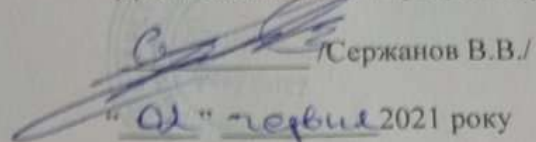 /Сержанов В.В./
"02" червня 2021 року